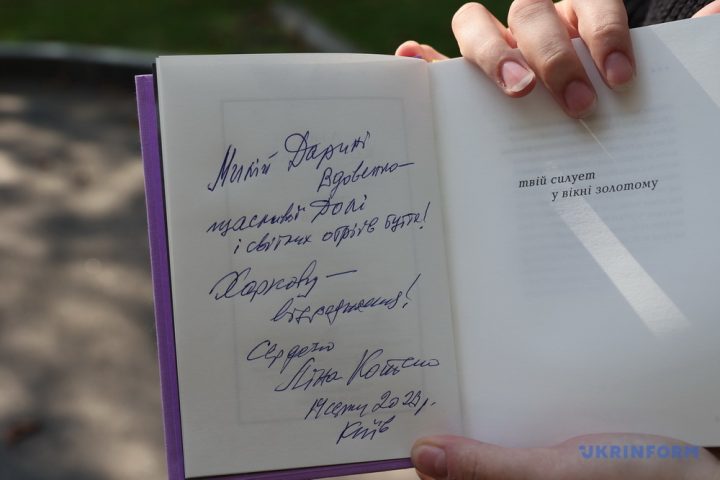 Милій Дарині
Вдовенко –
щасливої Долі
і світлих обріїв буття!
Харкову –
відродження!
Сердечно
Ліна Костенко
2023 р.
Київ
твій силует
у вікні золотому
UKRINFORM